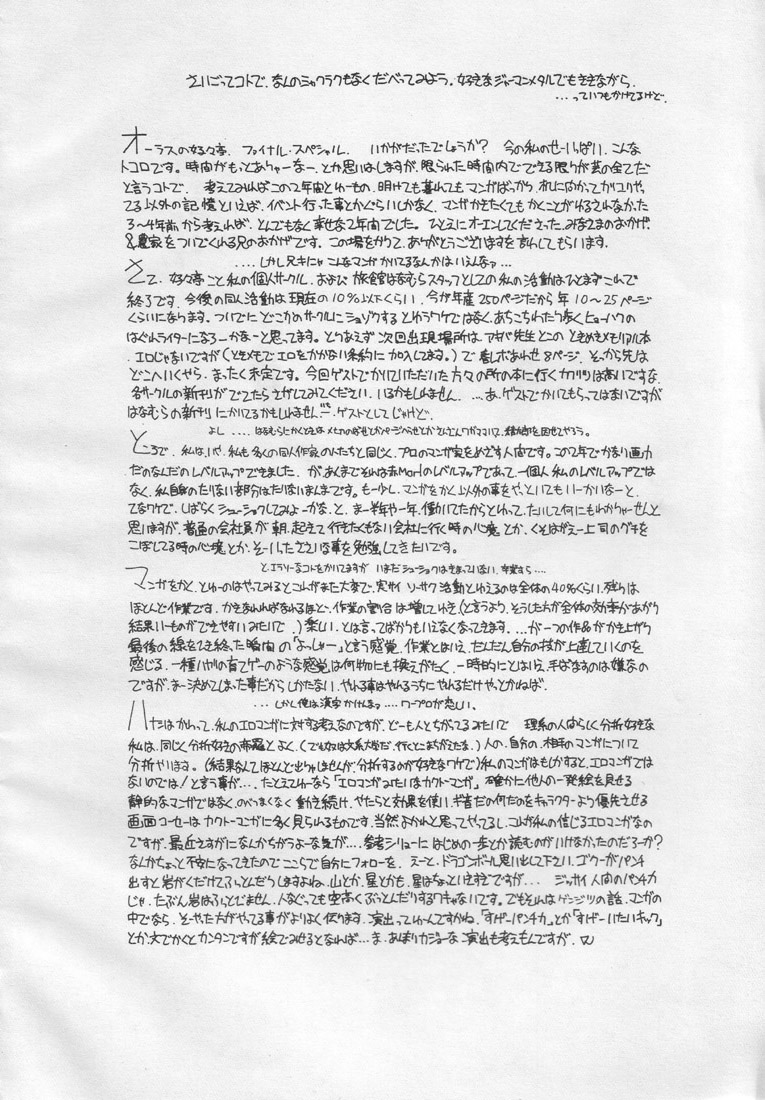 さいごってコトで、なんのミャクラクもなくだべってみよう。好きなジャーマンメタルでもききながら、
…っていつもかけてるけど、
オーラスの好々亭、ファイナル・スペシャル、いかがだったでしょうか? 今の私のせーいっぱい、こんな
トコロです。時間がもっとありゃーなー、とか思いはしますが、限られた時間内でできる限りが芸の全てだ
と言うコトで、考えてみればこの2年間とゆーもの、明けても暮れてもマンガばっかり、机に向かってカリコリやっ
てる以外の記憶といえば、イベント行った事とかぐらいしかなく、マンガかきたくてもかくことがゆるされなかった
3〜4年前から考えれば、とんでもなく幸せな2年間でした。ひとえにオーエンしてくださった、みなさまのおかげ、
&農家をついでくれる兄のおかげです。この場をかりて、ありがとうございますを言わしてもらいます、
....しかし兄キにゃ こんなマンガ かいてるなんかはいえんなァ…
さて、好々亭こと私の個人サークル、および 旅館はなむらスタッフとしての私の活動はひとまずこれで
終了です、今後の同人活動は現在の10%以下くらい、今が年産250ページだから年10〜25ページ
くらいになります。ついでにどこかのサークルにショゾクするとゆうワケではなく、あちこちわたり歩くヒョーハクの
はぐれライターになろーかなーと思ってます。とりあえず次回出現場所は、アキバ先生とこの ときめきメモリアル本
、エロじゃないですが(ときメモでエロをかかない条約に加入してます。)で 表しボあわせ8ページ、そっから先は
どこへいくやら、まったく未定です。今回ゲストでかいていただいた方々の所の本に行くカクリツは高いですな、
各サークルの新刊がでてたらさがしてみてください、いるかもしれません、…あ、ゲストでかいてもらってはないですが
はなむらの新刊にかいてるかもしれません、ゲストとしてじゃけど、
よし....はなむらにかくときは
ところで、私は、いや、私も多くの同人作家の人たちと同じく、プロのマンガ家をめざす人間です。この2年でかなり画力
だのなんだのレベルアップできました、が、あくまでそれは赤Morlのレベルアップであって、一個人 私のレベルアップでは
なく、私自身のたりない部分はたりないまんまです。も一少し、マンガをかく以外の事をやっといてもいーかいなーと、
てなワケで、しばらくシューショクしてみよーかな、と、まー半年や一年、働いてたからといって、たいして何にもわからりゃーせんと
思いますが、普通の会社員が朝、起きて行きたくもない会社に行く時の心境とか、くそはがえー上司のグチを
こぼしてる時の心境とか、そーいったささいな事を勉強してきたいです。
と、エラソーなコトをかいてますが いまだシューショクはきまっていない、卒業すら....
マンガをかく、とゆーのはやってみるとこれがまた大変で、実サイ ソーサク活動といえるのは全体の40%くらい、残りは
ほとんど作業です、かきなれればなれるほど、作業の割合は増していき、(と言うより、そうした方が全体の効率があがり
結果いーものができやすいみたいで、)楽しい、とは言ってばかりもいえなくなってきます、…が一つの作品がかき上がり
最後の線を引き終った瞬間の「よっしゃー」と言う感覚、作業とはいえ、だんだん自分の技が上達していくのを
感じる、一種ハヤリの育てゲーのような感覚は何物にも換えがたく、一時的にとはいえ、手ばなすのは嫌なの
ですが、まー決めてしまった事だからしかたない、やれる事はやれるうちにやれるだけやっとかねば、
…しかし俺は漢字かけんねェ....ワープロが恋しい、
ハナシはかわって、私のエロマンガに対する考えなのですが、どーも人とちがってるみたいで 理系の人はらしく分析好きな
私は、同じく分析好きの 帝羅とよく、(でも奴は文系大学だ、行くとこまちがえたな、)人の、自分の、相手のマンガについて
分析やります。(結果なんてほとんど出やしませんが、分析するのが好きなワケで)私のマンガはもしかすると、エロマンガでは
ないのでは!と言う事が…、たとえてゆーなら「エロマンガみたいなカクトーマンガ」確かに他人の一発絵を見せる
静的なマンガではなく、のべつまくなく動き続け、やたらと効果を使い、ギ音だの何だのをキャラクターより優先させる
画面コーセーはカクトーマンガに多く見られるものです、当然よかれと思ってやってるし、これが私の信じるエロマンガなの
ですが、最近さすがになんかちがうよーな気が....参考シリョーにはじめの一歩とか読むのがいけなかったのだろーか?
なんかちょっと不安になってきたので ここらで自分にフォローを、えーと、ドラゴンボール思い出して下さい、ゴクーがパンチ
出すと岩がくだけてふっとんだりしますよね、山とか、星とかも、星はちょっといえすぎですが… ジッサイ人間のパンチ力
じゃ、たぶん岩はふっとびません、人なぐっても空高くぶっとんだりするワキャないです。でもそれはゲンジツの話、マンガの
中でなら、そーやった方がやってる事がよりよく伝わります、演出ってゆーんですかね、「すげーパンチ力」とか「すげーいたいキック」
とか、文でかくとカンタンですが絵でみせるとなれば…ま、あんまりカジョーな演出も考えもんですが、